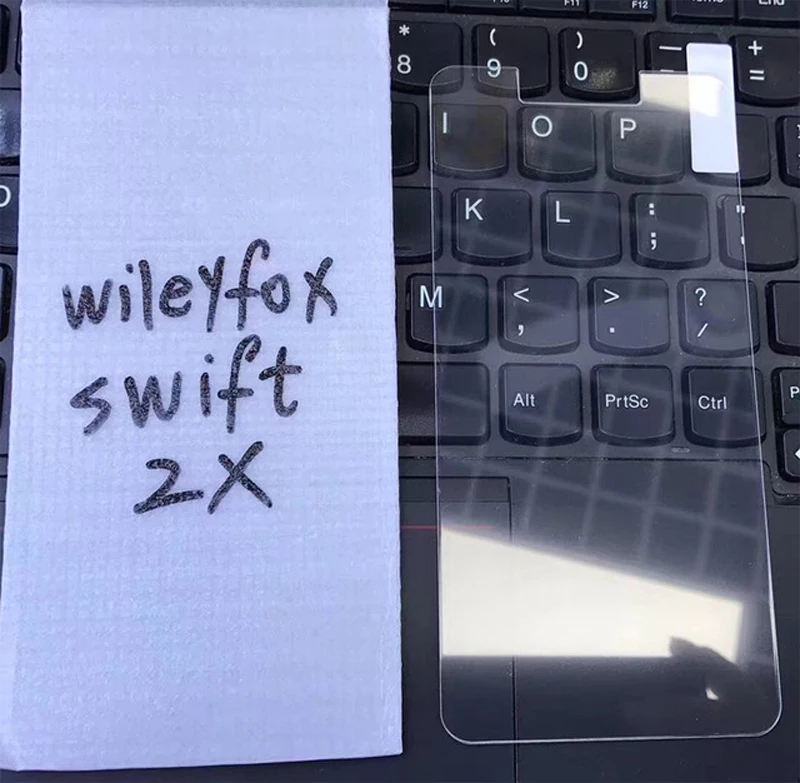 wileyfox
swift
2X
F11 F12
* ( ) — +
8 9 0 =
I O P
K L : "
; '
M < > ?
, . /
Alt PrtSc Ctrl